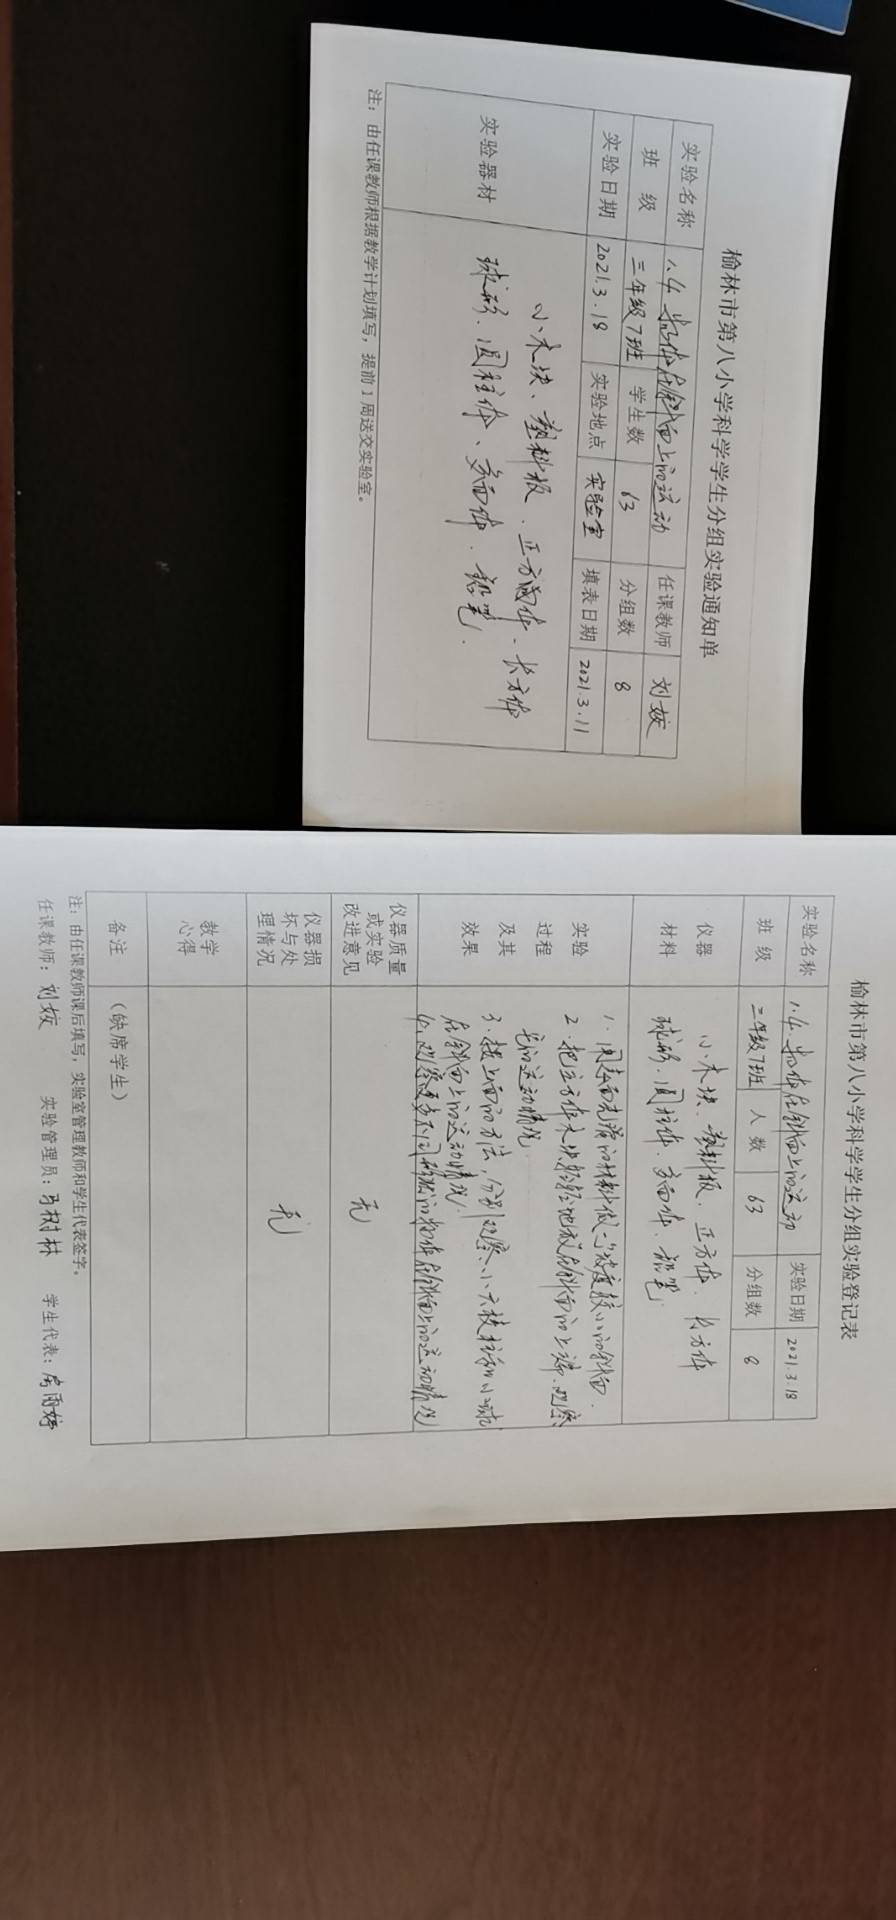 榆林市第八小学科学学生分组实验通知单
实验名称 1.4 物体在斜面上的运动 任课教师 刘姣
班 级 三年级7班 学生数 63 分组数 8
实验日期 2021.3.18 实验地点 实验室 填表日期 2021.3.11
实验器材
小木块、塑料板、正方体、长方体
球形、圆柱体、多面体、铅笔.
注：由任课教师根据教学计划填写，提前1周送交实验室。
榆林市第八小学科学学生分组实验登记表
实验名称 1.4. 物体在斜面上的运动 实验日期 2021.3.18
班 级 三年级7班 人 数 63 分组数 8
仪器
材料
小木块、塑料板、正方体、长方体
球形、圆柱体、多面体、铅笔
实验
过程
及其
效果
1. 用表面光滑的材料做一个坡度较小的斜面.
2. 把立方体木块轻轻地放在斜面的上端.观察
它的运动情况
3. 按上面的方法，分别观察小六棱柱和小球
在斜面上的运动情况.
4. 观察更多不同形状的物体在斜面上的运动情况
仪器质量
或实验
改进意见
无
仪器损
坏与处
理情况
无
教学
心得
备注 （缺席学生）
注：由任课教师课后填写，实验室管理教师和学生代表签字。
任课教师：刘姣 实验管理员：马树林 学生代表：房雨婷